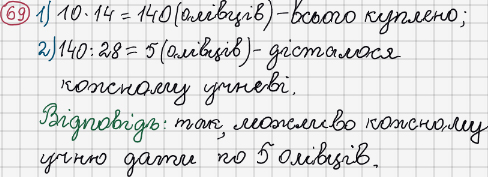 69 1) 10 · 14 = 140 (олівців) - всього куплено;
2) 140 : 28 = 5 (олівців) - дісталося
кожному учневі.
Відповідь: так, можливо кожному
учню дати по 5 олівців.